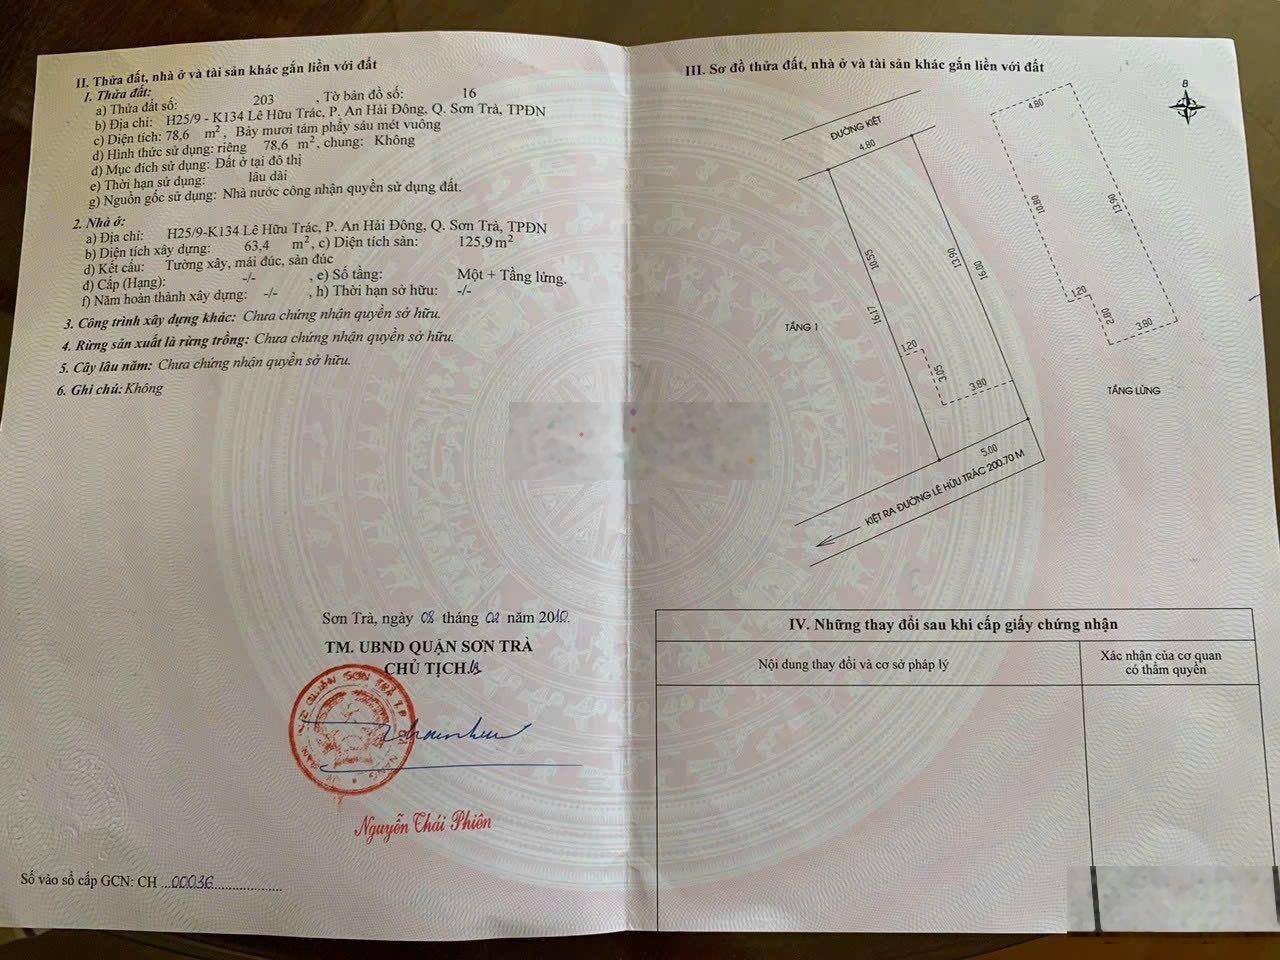 II. Thửa đất, nhà ở và tài sản khác gắn liền với đất
1. Thửa đất:
a) Thửa đất số: 203 , Tờ bản đồ số: 16
b) Địa chỉ: H25/9 - K134 Lê Hữu Trác, P. An Hải Đông, Q. Sơn Trà, TPĐN
c) Diện tích: 78,6 m², Bảy mươi tám phẩy sáu mét vuông
d) Hình thức sử dụng: riêng 78,6 m², chung: Không
đ) Mục đích sử dụng: Đất ở tại đô thị
e) Thời hạn sử dụng: lâu dài
g) Nguồn gốc sử dụng: Nhà nước công nhận quyền sử dụng đất.
2. Nhà ở:
a) Địa chỉ: H25/9-K134 Lê Hữu Trác, P. An Hải Đông, Q. Sơn Trà, TPĐN
b) Diện tích xây dựng: 63,4 m², c) Diện tích sàn: 125,9 m²
d) Kết cấu: Tường xây, mái đúc, sàn đúc
đ) Cấp (Hạng): -/- , e) Số tầng: Một + Tầng lửng.
f) Năm hoàn thành xây dựng: -/- , h) Thời hạn sở hữu: -/-
3. Công trình xây dựng khác: Chưa chứng nhận quyền sở hữu.
4. Rừng sản xuất là rừng trồng: Chưa chứng nhận quyền sở hữu.
5. Cây lâu năm: Chưa chứng nhận quyền sở hữu.
6. Ghi chú: Không
Sơn Trà, ngày 08 tháng 02 năm 2010.
TM. UBND QUẬN SƠN TRÀ
CHỦ TỊCH
Nguyễn Thái Phiên
Số vào sổ cấp GCN: CH ...00036...
III. Sơ đồ thửa đất, nhà ở và tài sản khác gắn liền với đất
B
ĐƯỜNG KIỆT
4.80
10.55
13.90
16.00
16.17
TẦNG 1
1.20
3.05
3.80
5.00
KIỆT RA ĐƯỜNG LÊ HỮU TRÁC 200.70 M
4.80
10.80
13.90
1.20
2.80
3.80
TẦNG LỬNG
IV. Những thay đổi sau khi cấp giấy chứng nhận
Nội dung thay đổi và cơ sở pháp lý
Xác nhận của cơ quan
có thẩm quyền